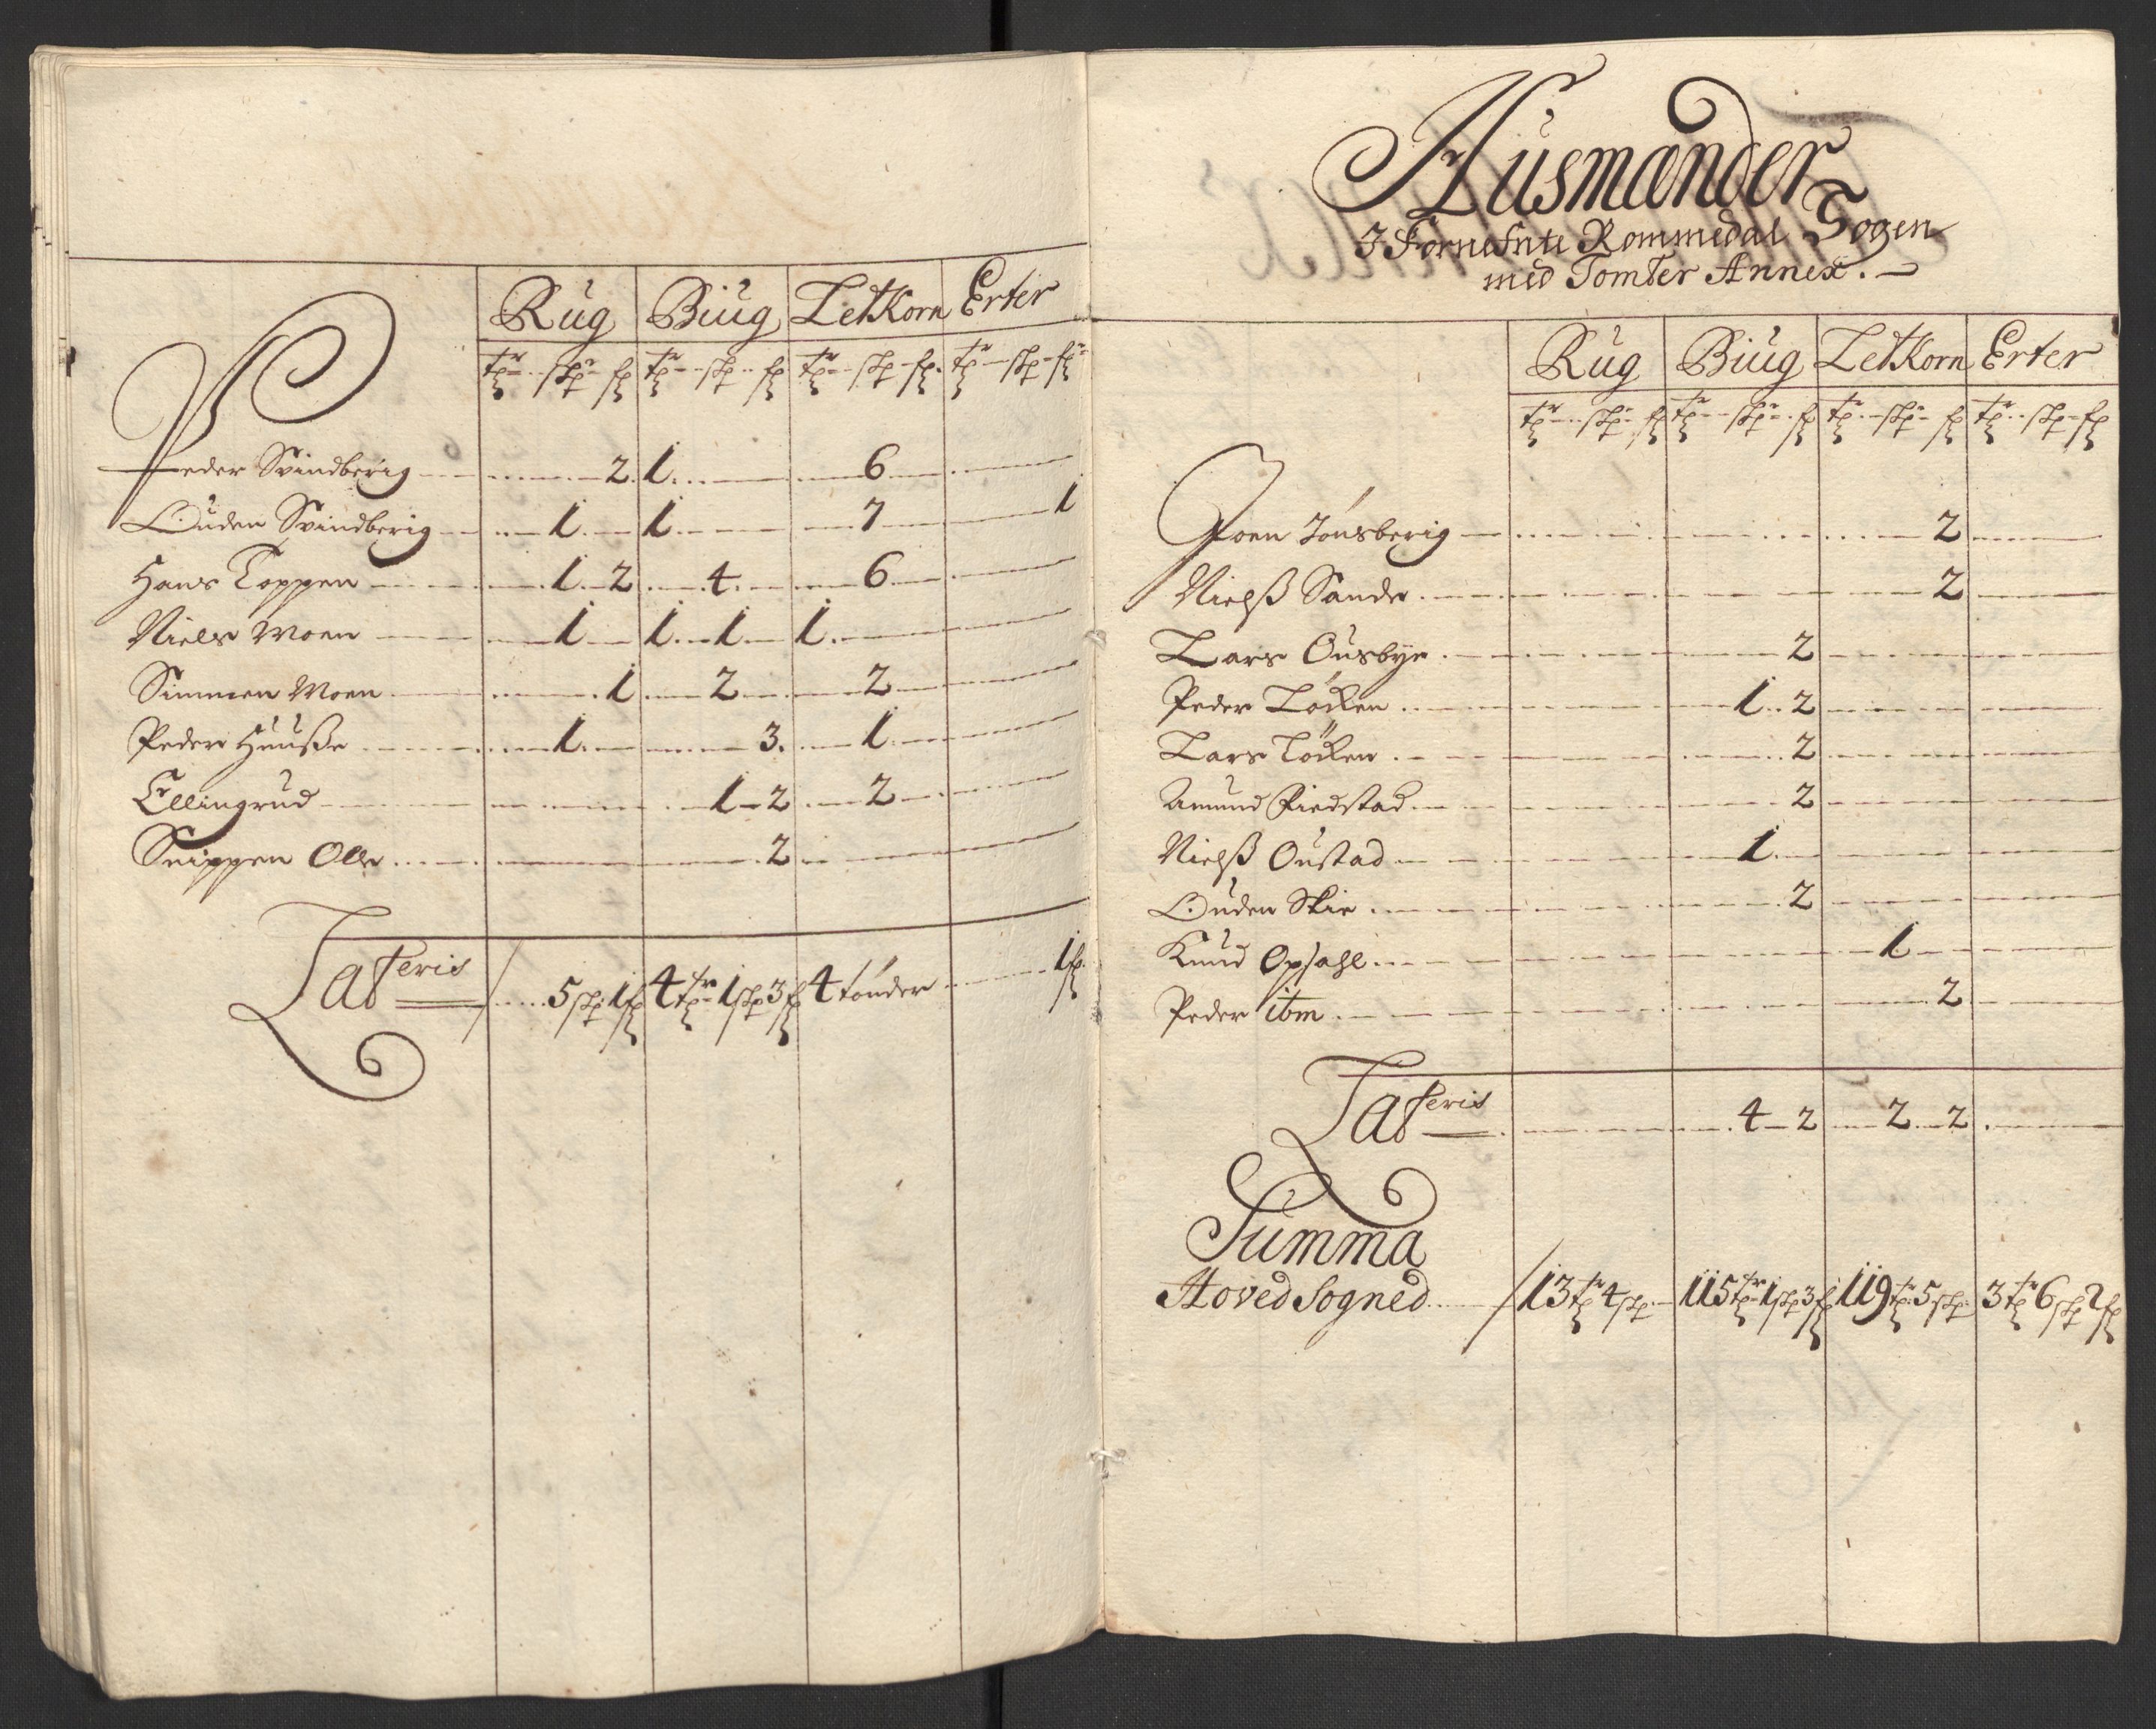 Rug Biug LetKorn Erter
tr skp fr tr skp fr tr skp fr tr skp fr
Peder Svindberig 2 1 6
Ouden Svindberig 1 1 7 1
Hans Toppen 1 2 4 6
Niels Moen 1 1 1 1
Simmen Moen 1 2 2
Peder Huuse 1 3 1
Ellingrud 1 2 2
Snippen Olle 2
Lateris 5 skp 1 fr 4 tr 1 skp 3 fr 4 tønder 1 fr
Husmænder
I Fornefnte Rommedal Sogen
med Tomter Annex.
Rug Biug LetKorn Erter
tr skp fr tr skp fr tr skp fr tr skp fr
Joen Tønsberig 2
Nielß Sande 2
Lars Ousbye 2
Peder Løcken 1 2
Lars Løcken 2
Amund Fiedstad 2
Nielß Oustad 1
Ouden Skie 2
Knud Opsahl 1
Peder ibm 2
Lateris 4 2 2 2
Summa
Hoved Sogned 13 tr 4 skp 115 tr 1 skp 3 fr 119 tr 5 skp 3 tr 6 skp 2 fr